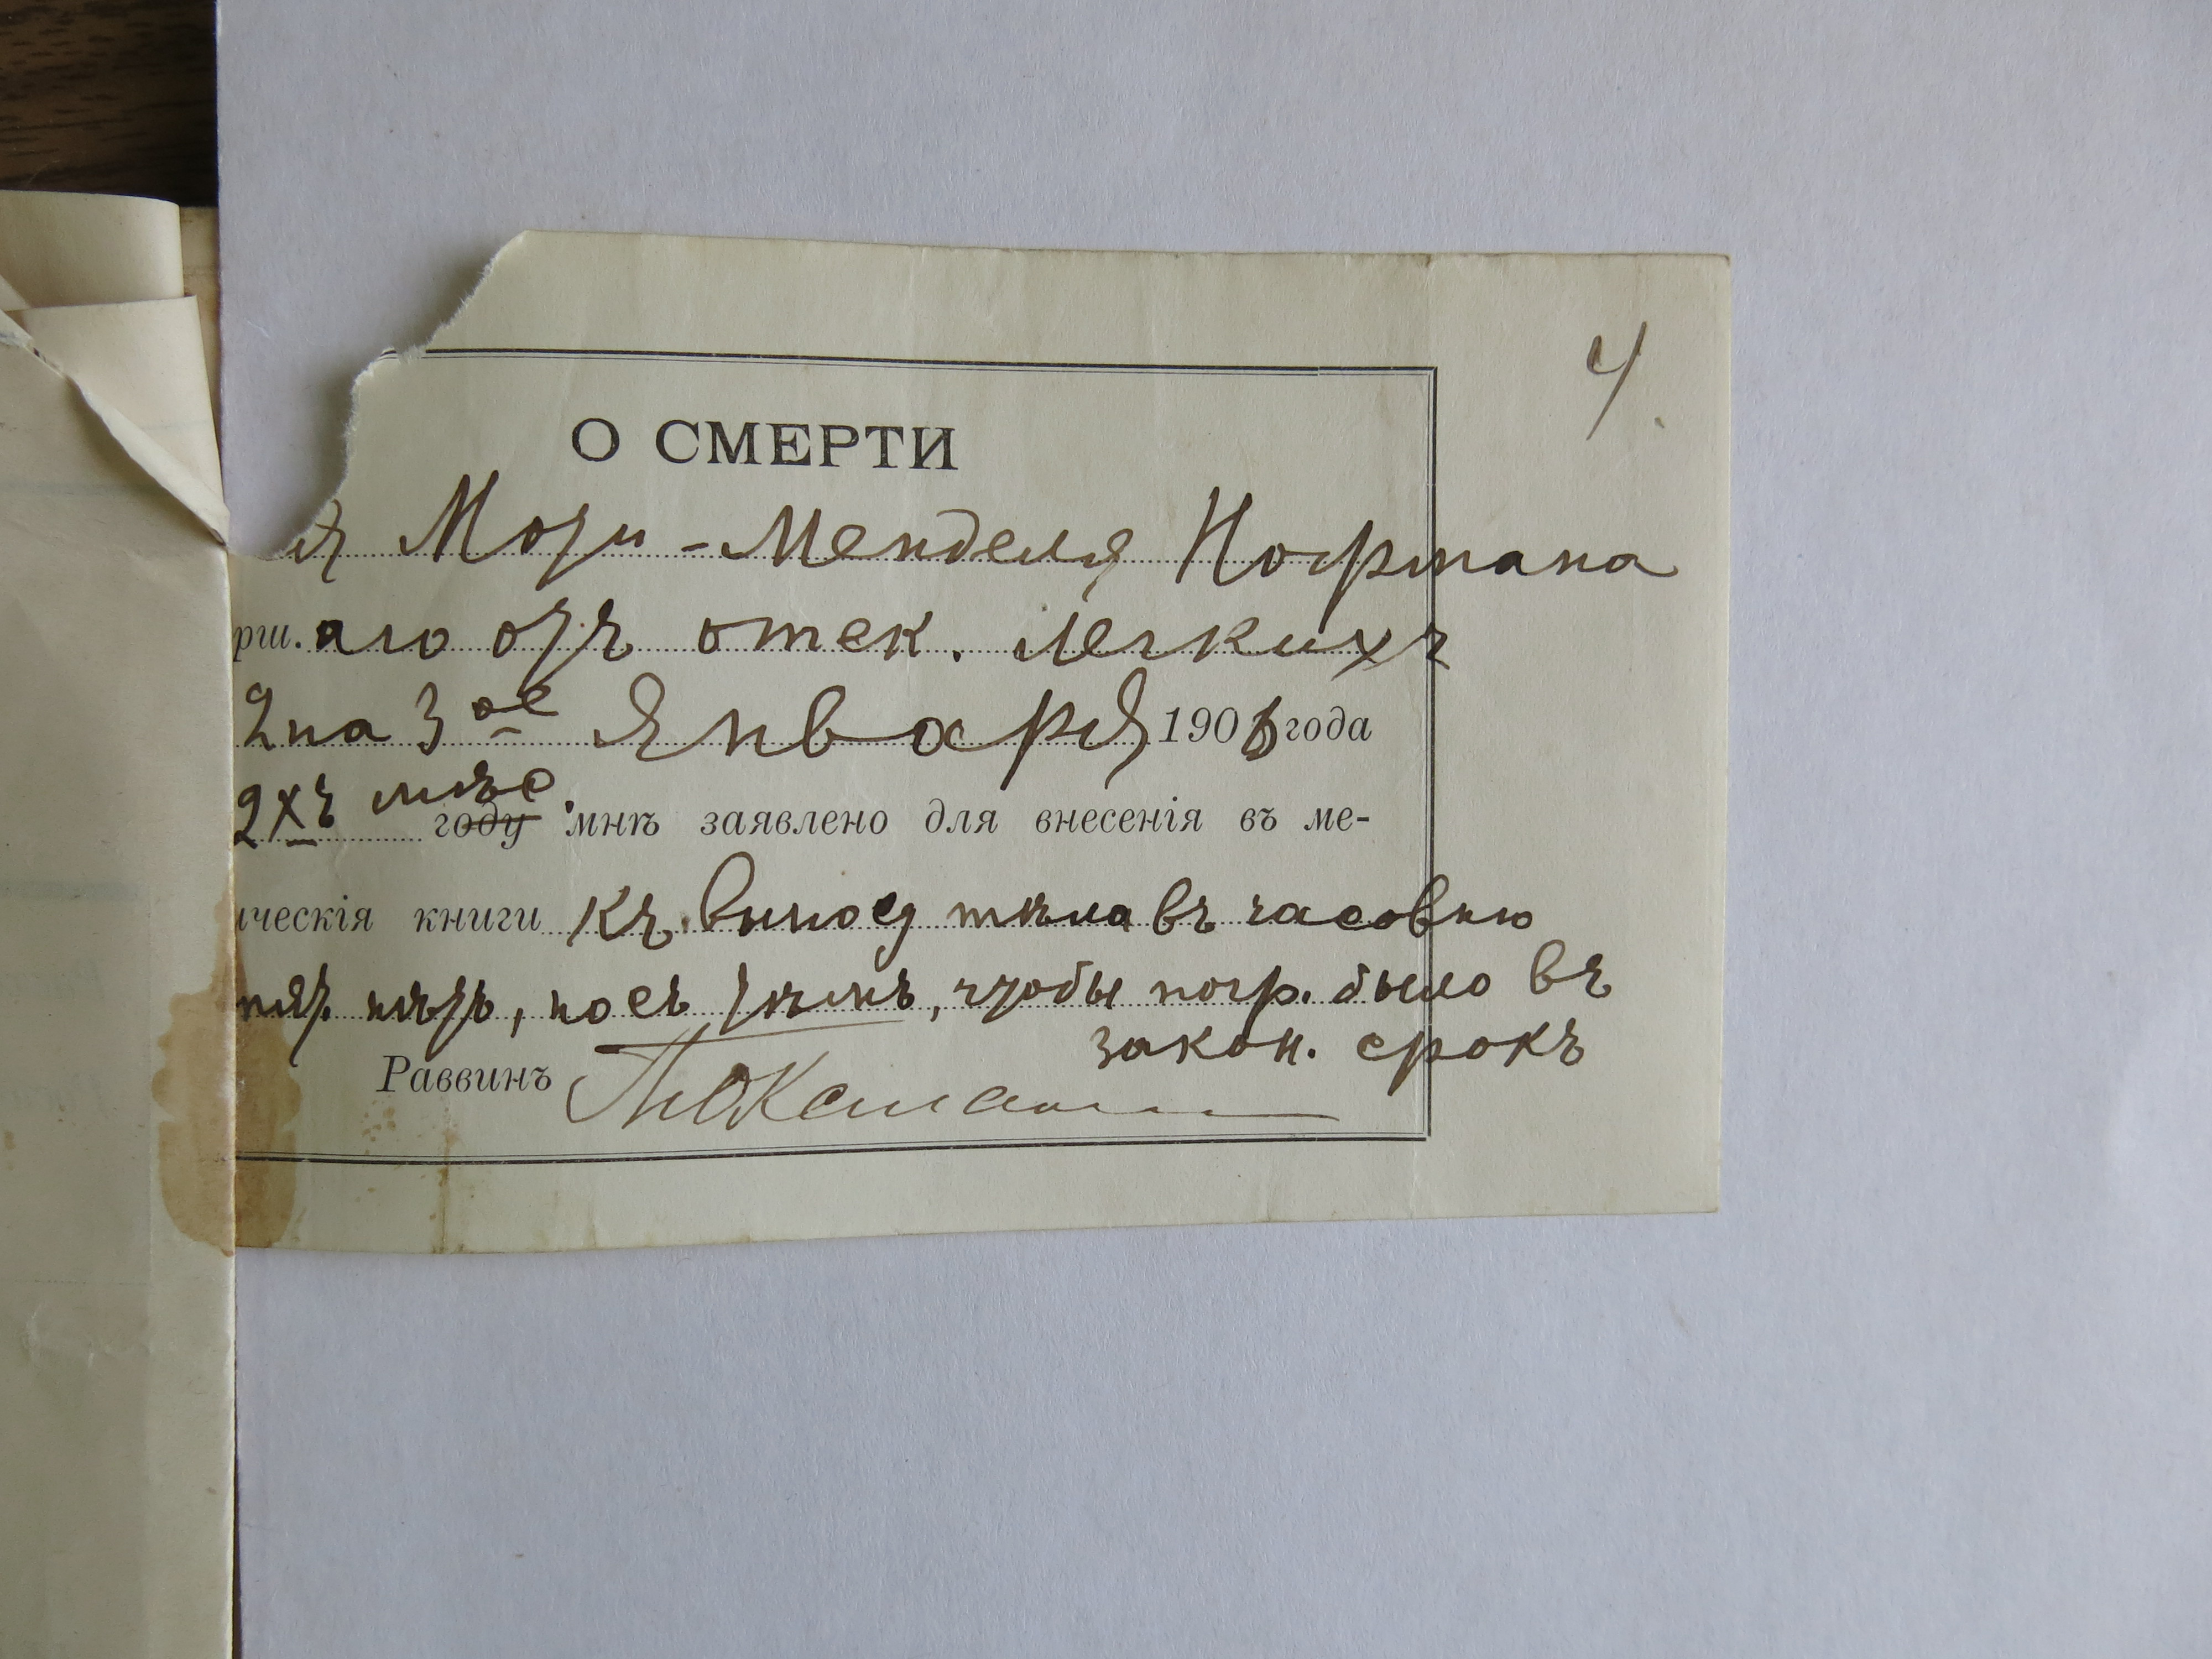 4.
О СМЕРТИ
ія Мози-Менделя Нофмана
рш. аго отъ отек. легкихъ
2 на 3 ое Января 1906 года
2хъ мѣс. году мнѣ заявлено для внесенія въ ме-
ическія книги къ выносу тѣла въ часовню
препят. нѣтъ, но съ тѣмъ, чтобы погр. было въ
закон. срокъ
Раввинъ